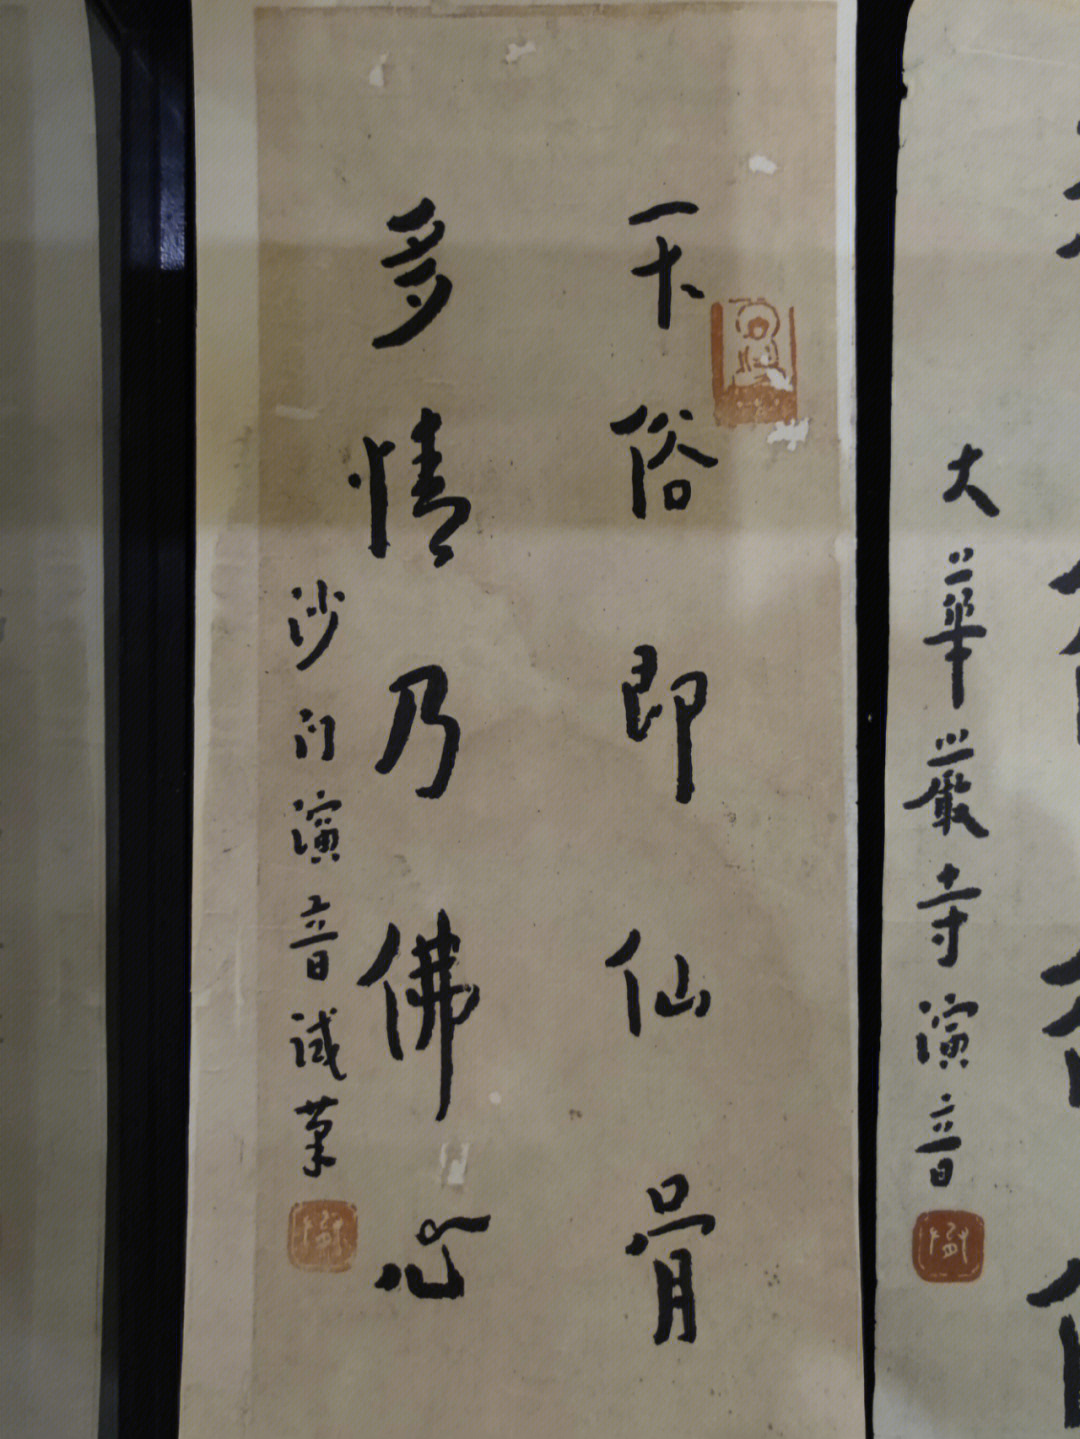 不俗即仙骨
多情乃佛心
沙門演音試筆
大華嚴寺演音